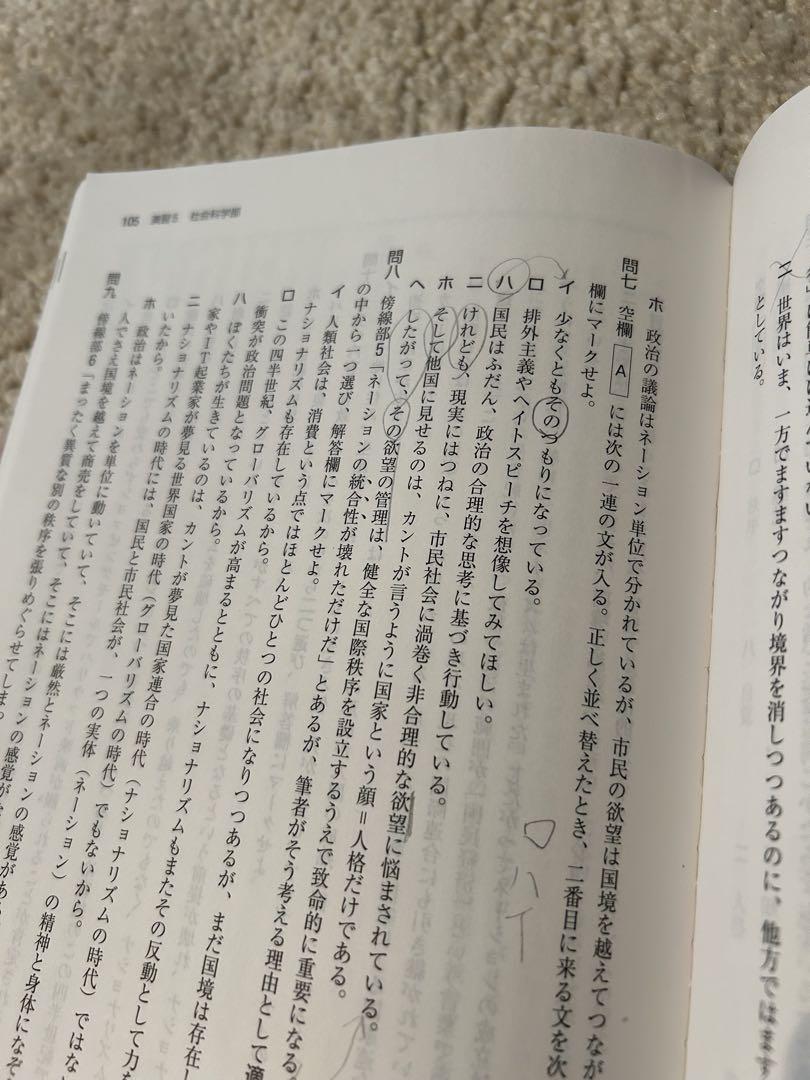 ニ 世界はいま、一方でますますつながり境界を消しつつあるのに、他方ではます
としている。
105 演習5 社会科学部
ホ 政治の議論はネーション単位で分かれているが、市民の欲望は国境を越えてつなが
問七 空欄 A には次の一連の文が入る。正しく並べ替えたとき、二番目に来る文を次
欄にマークせよ。
イ 少なくともそのつもりになっている。
ロ 排外主義やヘイトスピーチを想像してみてほしい。
ハ 国民はふだん、政治の合理的な思考に基づき行動している。
ニ けれども、現実にはつねに、市民社会に渦巻く非合理的な欲望に悩まされている。
ホ そして他国に見せるのは、カントが言うように国家という顔＝人格だけである。
ヘ したがって、その欲望の管理は、健全な国際秩序を設立するうえで致命的に重要になる
ロハイ
問八 傍線部5「ネーションの統合性が壊れただけだ」とあるが、筆者がそう考える理由として適
の中から一つ選び、解答欄にマークせよ。
イ 人類社会は、消費という点ではほとんどひとつの社会になりつつあるが、まだ国境は存在し
ナショナリズムも存在しているから。
ロ この四半世紀、グローバリズムが高まるとともに、ナショナリズムもまたその反動として力を
衝突が政治問題となっているから。
ハ ぼくたちが生きているのは、カントが夢見た国家連合の時代（ナショナリズムの時代）ではな
家やIT起業家が夢見る世界国家の時代（グローバリズムの時代）でもないから。
ニ ナショナリズムの時代には、国民と市民社会が、一つの実体（ネーション）の精神と身体になぞ
いたから。
ホ 政治はネーションを単位に動いていて、そこには厳然とネーションの感覚がある
人でさえ国境を越えて商売をしていて、そこにはネーションの感覚が
問九 傍線部6「まったく異質な別の秩序を張りめぐらせてしまっ